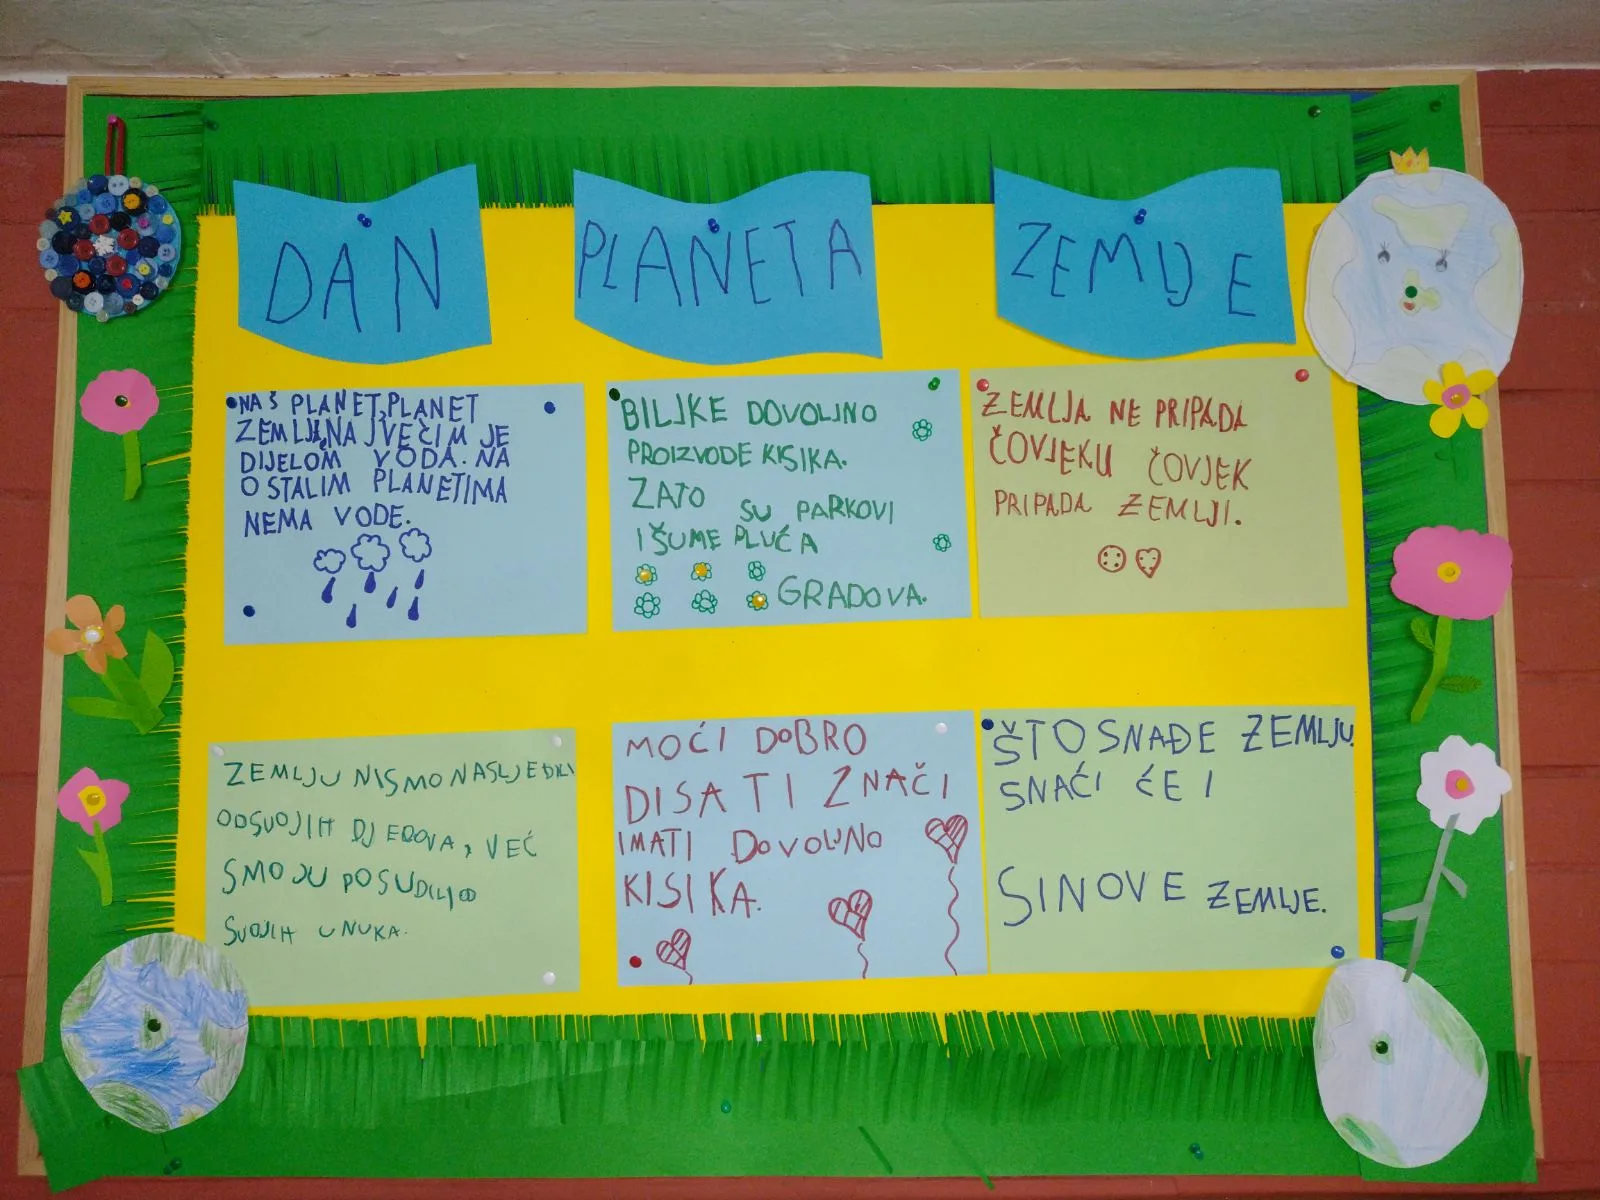 DAN
PLANETA
ZEMLJE
NAŠ PLANET, PLANET
ZEMLJA, NAJVEĆIM JE
DIJELOM VODA. NA
OSTALIM PLANETIMA
NEMA VODE.
BILJKE DOVOLJNO
PROIZVODE KISIKA.
ZATO SU PARKOVI
I ŠUME PLUĆA
GRADOVA.
ZEMLJA NE PRIPADA
ČOVJEKU ČOVJEK
PRIPADA ZEMLJI.
ZEMLJU NISMO NASLJEDILI
OD SVOJIH DJEDOVA, VEĆ
SMO JU POSUDILI OD
SVOJIH UNUKA.
MOĆI DOBRO
DISATI ZNAČI
IMATI DOVOLJNO
KISIKA.
ŠTO SNAĐE ZEMLJU
SNAĆI ĆE I
SINOVE ZEMLJE.